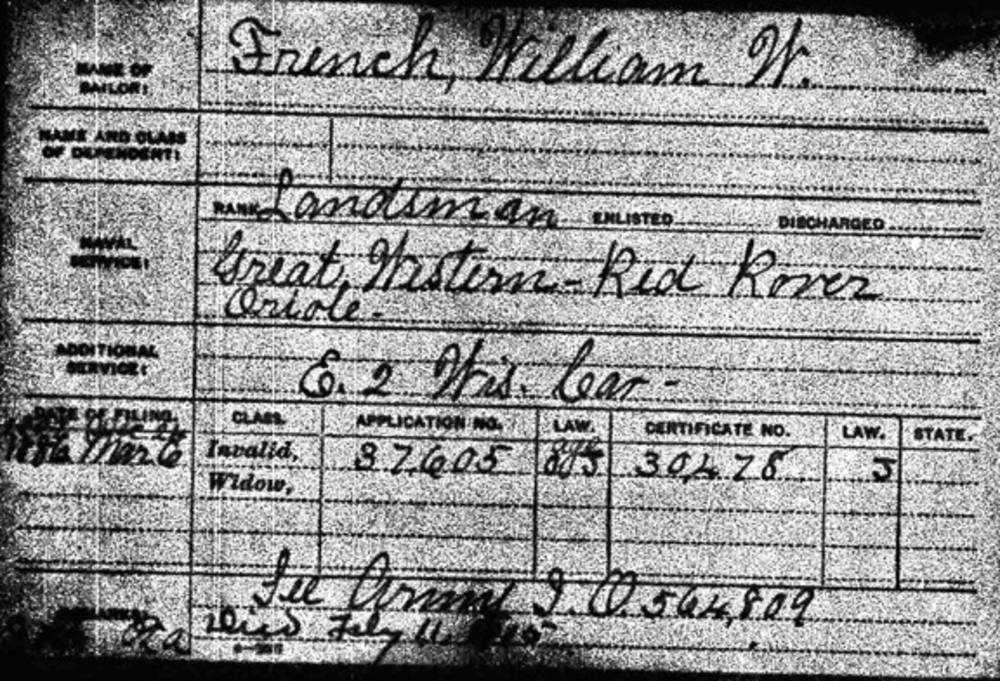 NAME OF SAILOR: French, William W.
NAME AND CLASS OF DEPENDENT:
NAVAL SERVICE: RANK Landsman ENLISTED DISCHARGED
Great Western - Red Rover
Oriole -
ADDITIONAL SERVICE: E. 2 Wis. Cav -
DATE OF FILING. CLASS. APPLICATION NO. LAW. CERTIFICATE NO. LAW. STATE.
1886 Mar 6 Invalid, 37605 30,478
Widow,
See Army I. O. 564,809
REMARKS: Died 11